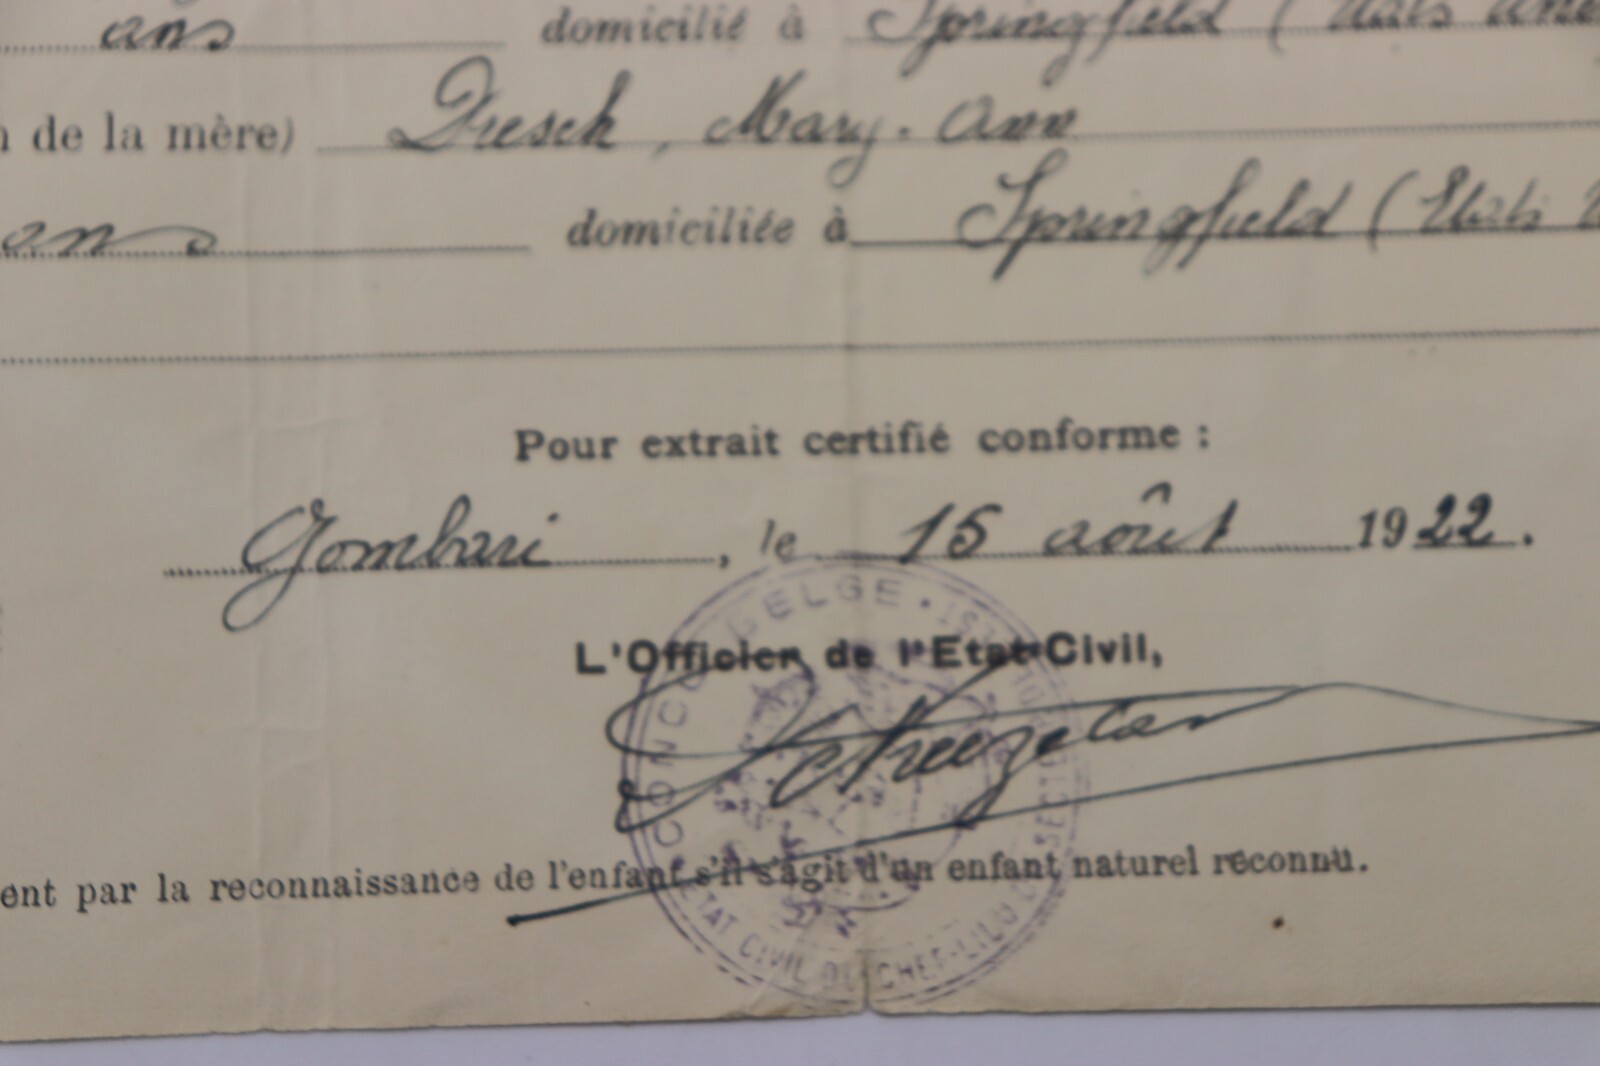 ans domicilié à Springfield (Etats
n de la mère) Dresch, Mary-Ann
ans domiciliée à Springfield (Etats
Pour extrait certifié conforme :
Gombari, le 15 août 1922.
CONGO BELGE
L'Officier de l'Etat-Civil,
ent par la reconnaissance de l'enfant s'il s'agit d'un enfant naturel reconnu.
ETAT CIVIL DU CHEF-LIEU DU SECTEUR